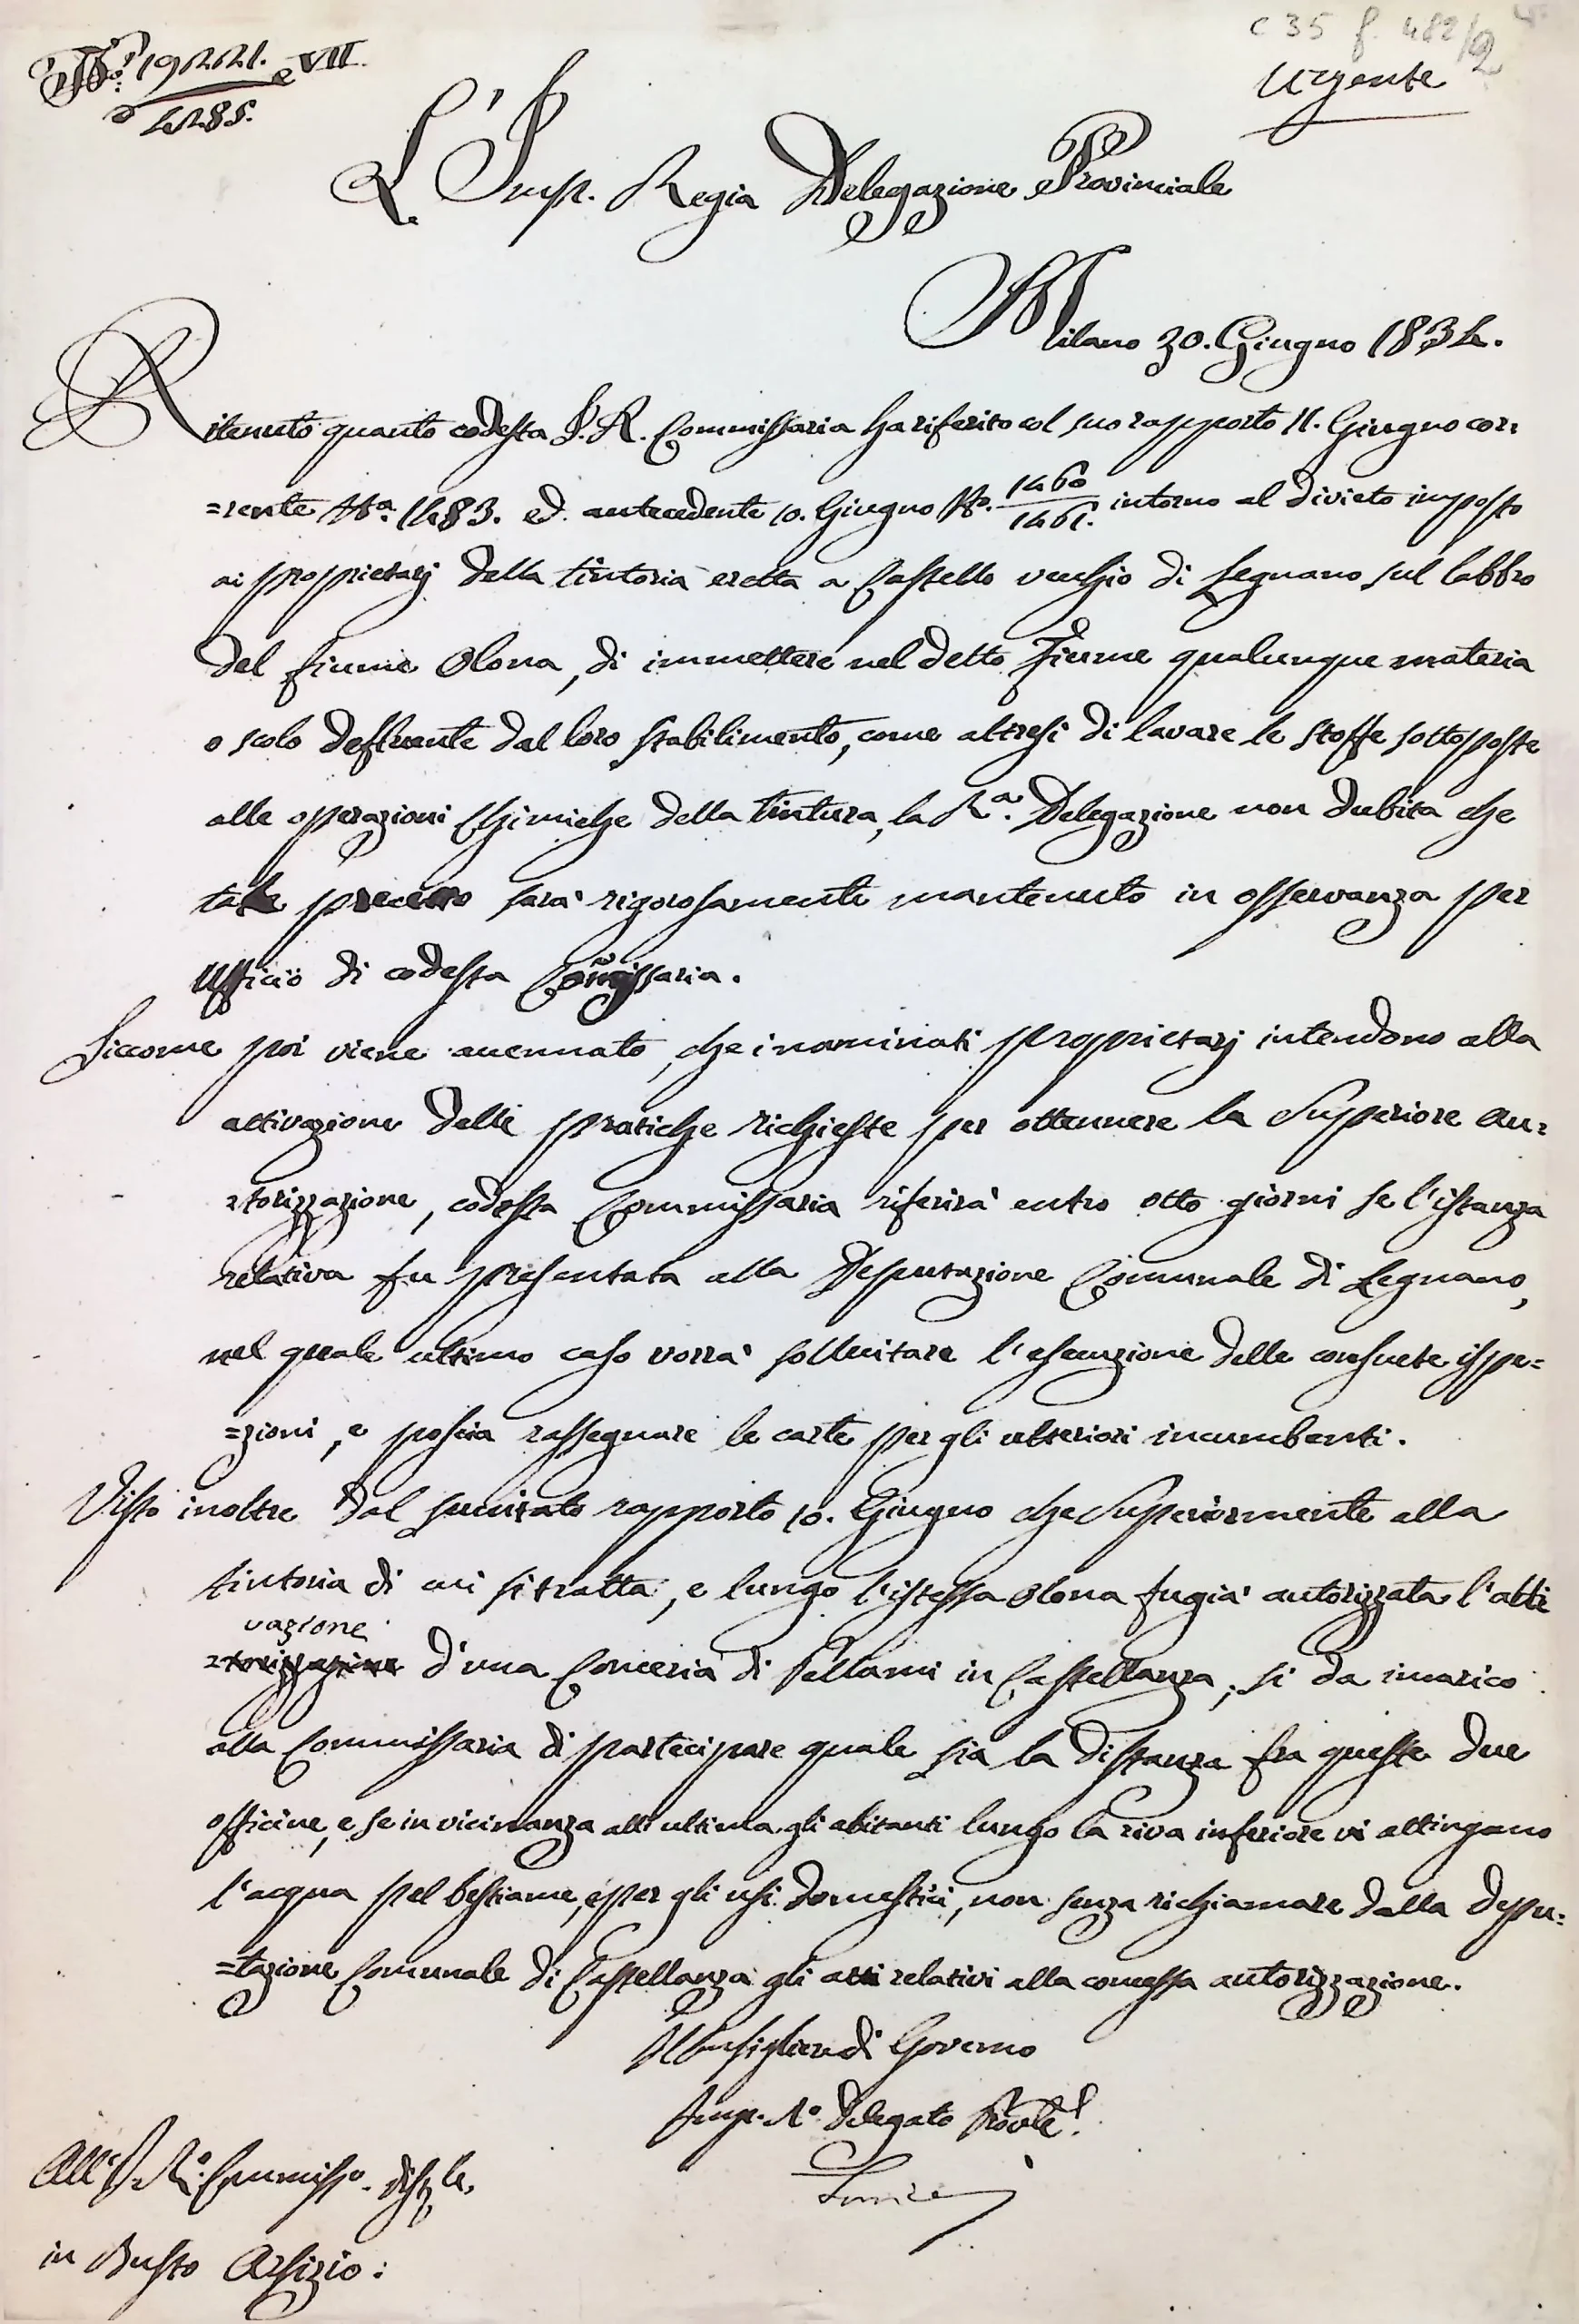 c 35 f. 482/2
Urgente
N.º 19221. e VII.
4285.
L'Imp. Regia Delegazione Provinciale
Milano 30. Giugno 1834.
Ritenuto quanto codesta I. R. Commissaria ha riferito col suo rapporto 11. Giugno cor=
=rente Nº. 1483. ed antecedente 10. Giugno Nº. 1460/1461. intorno al divieto imposto
ai proprietarj della tintoria eretta a Castello vecchio di Legnano sul labbro
del fiume Olona, di immettere nel detto Fiume qualunque materia
o scolo defluente dal loro stabilimento, come altresi di lavare le stoffe sottoposte
alle operazioni Chimiche della tintura, la Rª. Delegazione non dubita che
tale precetto sarà rigorosamente mantenuto in osservanza per
Ufficio di codesta Comissaria.
Siccome poi viene accennato, che i nominati proprietarj intendono alla
attivazione delle pratiche richieste per ottennere la Superiore au=
=torizzazione, codesta Commissaria riferirà entro otto giorni se l'istanza
relativa fu presentata alla Deputazione Comunale di Legnano,
nel quale ultimo caso vorrà sollecitare l'esecuzione delle consuete ispe=
=zioni, e poscia rassegnare le carte per gli ulteriori incumbenti.
Visto inoltre dal sucitato rapporto 10. Giugno che Superiormente alla
tintoria di cui si tratta, e lungo l'istessa Olona fu già autorizzata l'atti
vazione
=torizzazione d'una Conceria di Pellami in Castellanza, si da incarico
alla Commissaria di partecipare quale sia la distanza fra queste due
officine, e se in vicinanza all'ultima gli abitanti lungo la riva inferiore vi attingano
l'acqua pel bestiame, e per gli usi domestici, non senza richiamare dalla Depu=
=tazione Comunale di Castellanza gli atti relativi alla concessa autorizzazione.
Il Consigliere di Governo
Imp. Rº. Delegato Provle.
All' I. Rº. Commissº. Distle.
in Busto Arsizio: